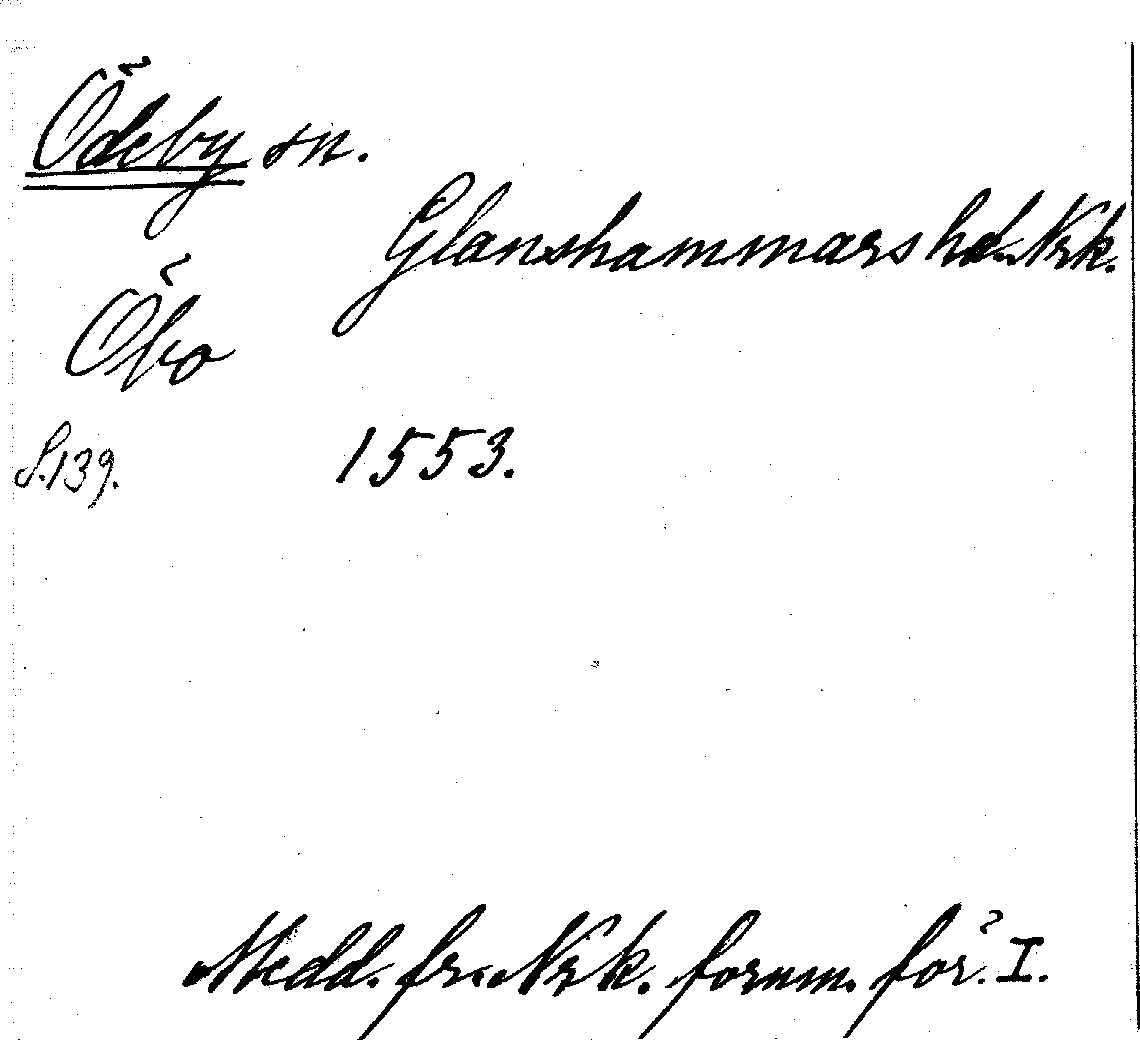 Ödeby sn.
Glanshammars hd. Nrk.
Öbo
S. 139. 1553.
Medd. fr. Nrk. fornm. för. I.